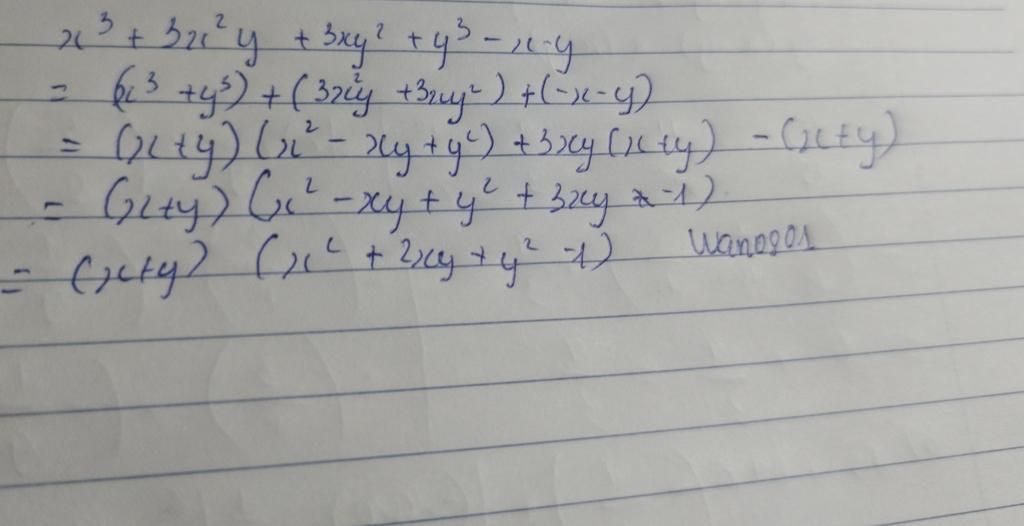 x³ + 3x²y + 3xy² + y³ - x-y
= (x³ + y³) + (3x²y + 3xy²) + (-x-y)
= (x+y) (x² - xy + y²) + 3xy (x+y) - (x+y)
= (x+y) (x² - xy + y² + 3xy -1)
= (x+y) (x² + 2xy + y² -1) wano901